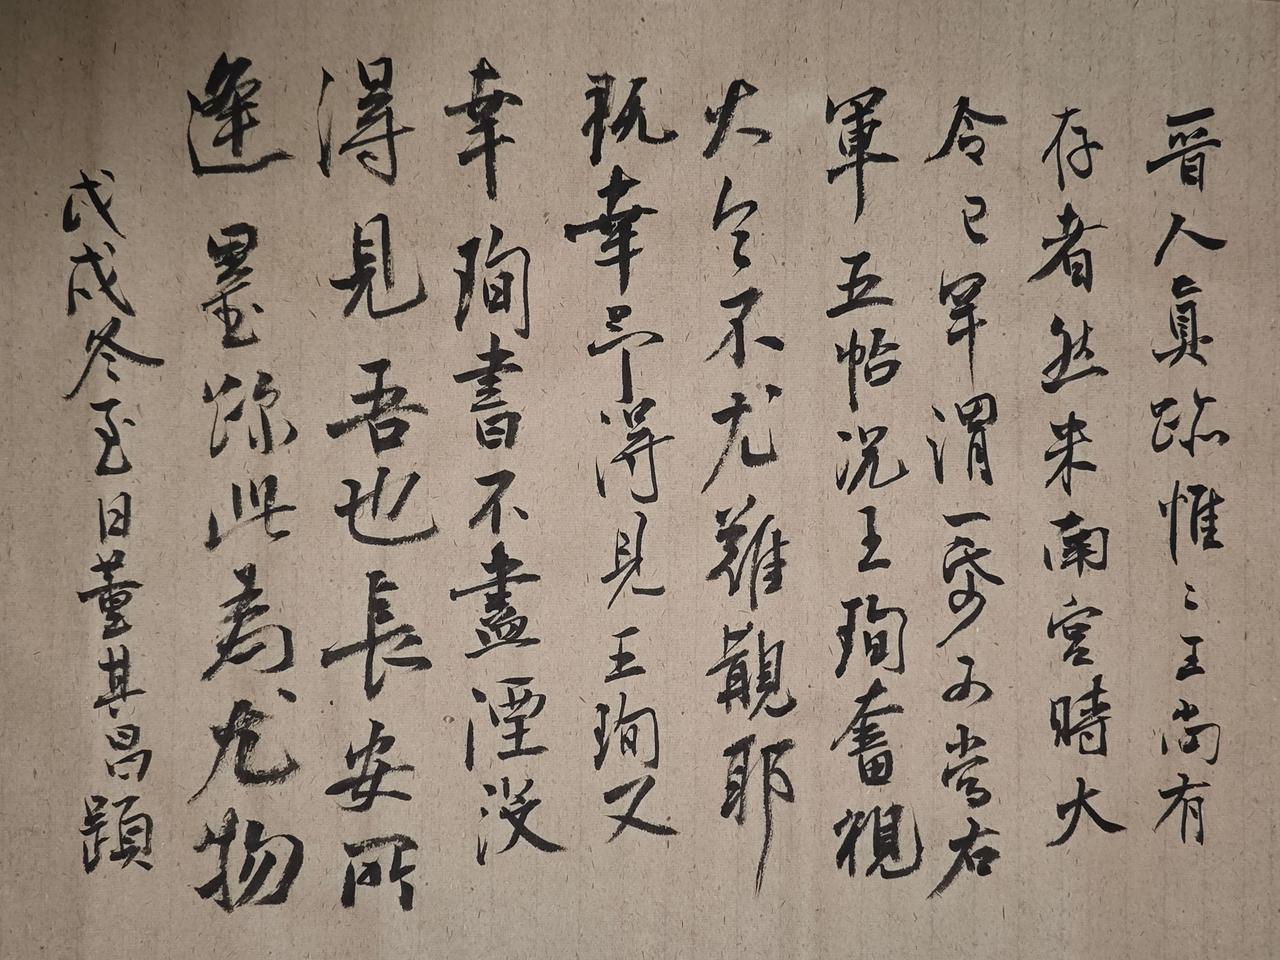 晉人眞跡惟二王尚有
存者然米南宮時大
令已罕謂一帋可當右
軍五帖況王珣奮視
大令不尤難覯耶
既幸予得見王珣又
幸珣書不盡湮沒
得見吾也長安所
逢墨跡此為尤物
戊戌冬至日董其昌題